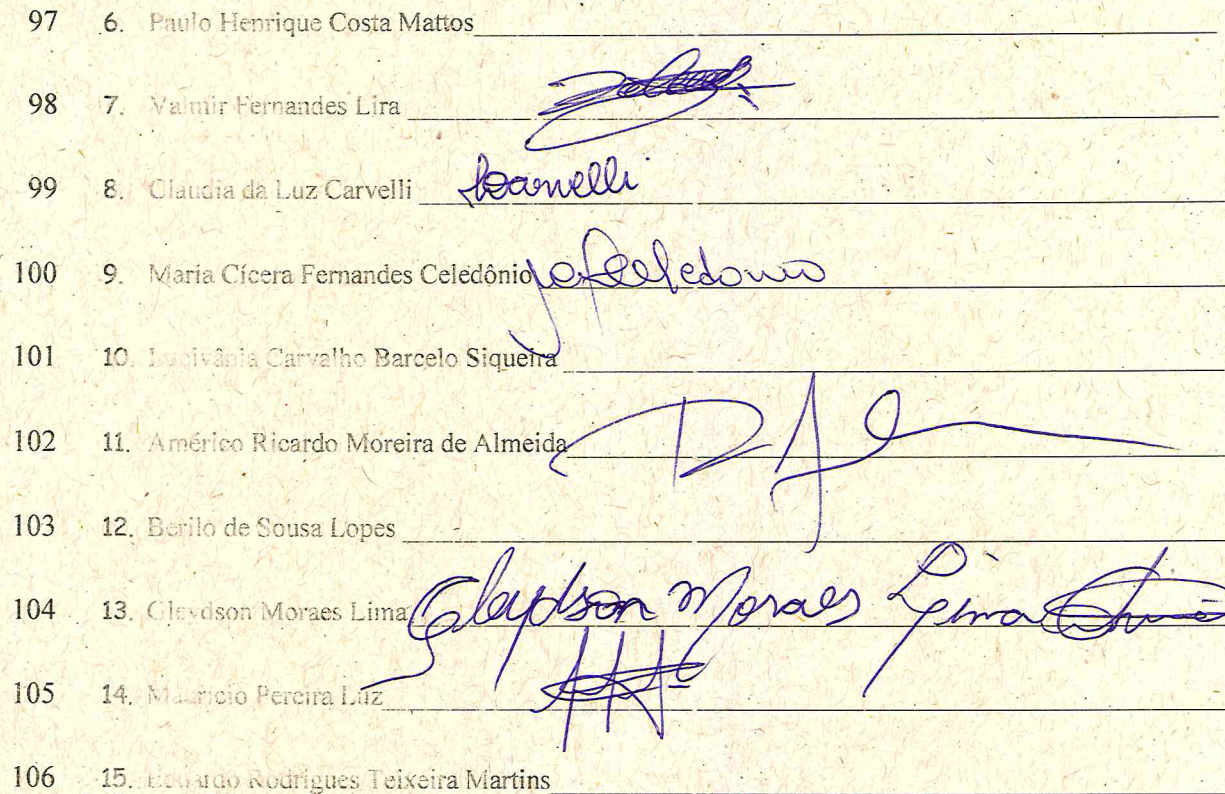 97 6. Paulo Henrique Costa Mattos
98 7. Valmir Fernandes Lira
99 8. Claudia da Luz Carvelli
100 9. Maria Cícera Fernandes Celedônio
101 10. Lucivânia Carvalho Barcelo Siqueira
102 11. Américo Ricardo Moreira de Almeida
103 12. Berilo de Sousa Lopes
104 13. Gleydson Moraes Lima Gleydson Moraes Lima
105 14. Mauricio Pereira Luz
106 15. Eduardo Rodrigues Teixeira Martins